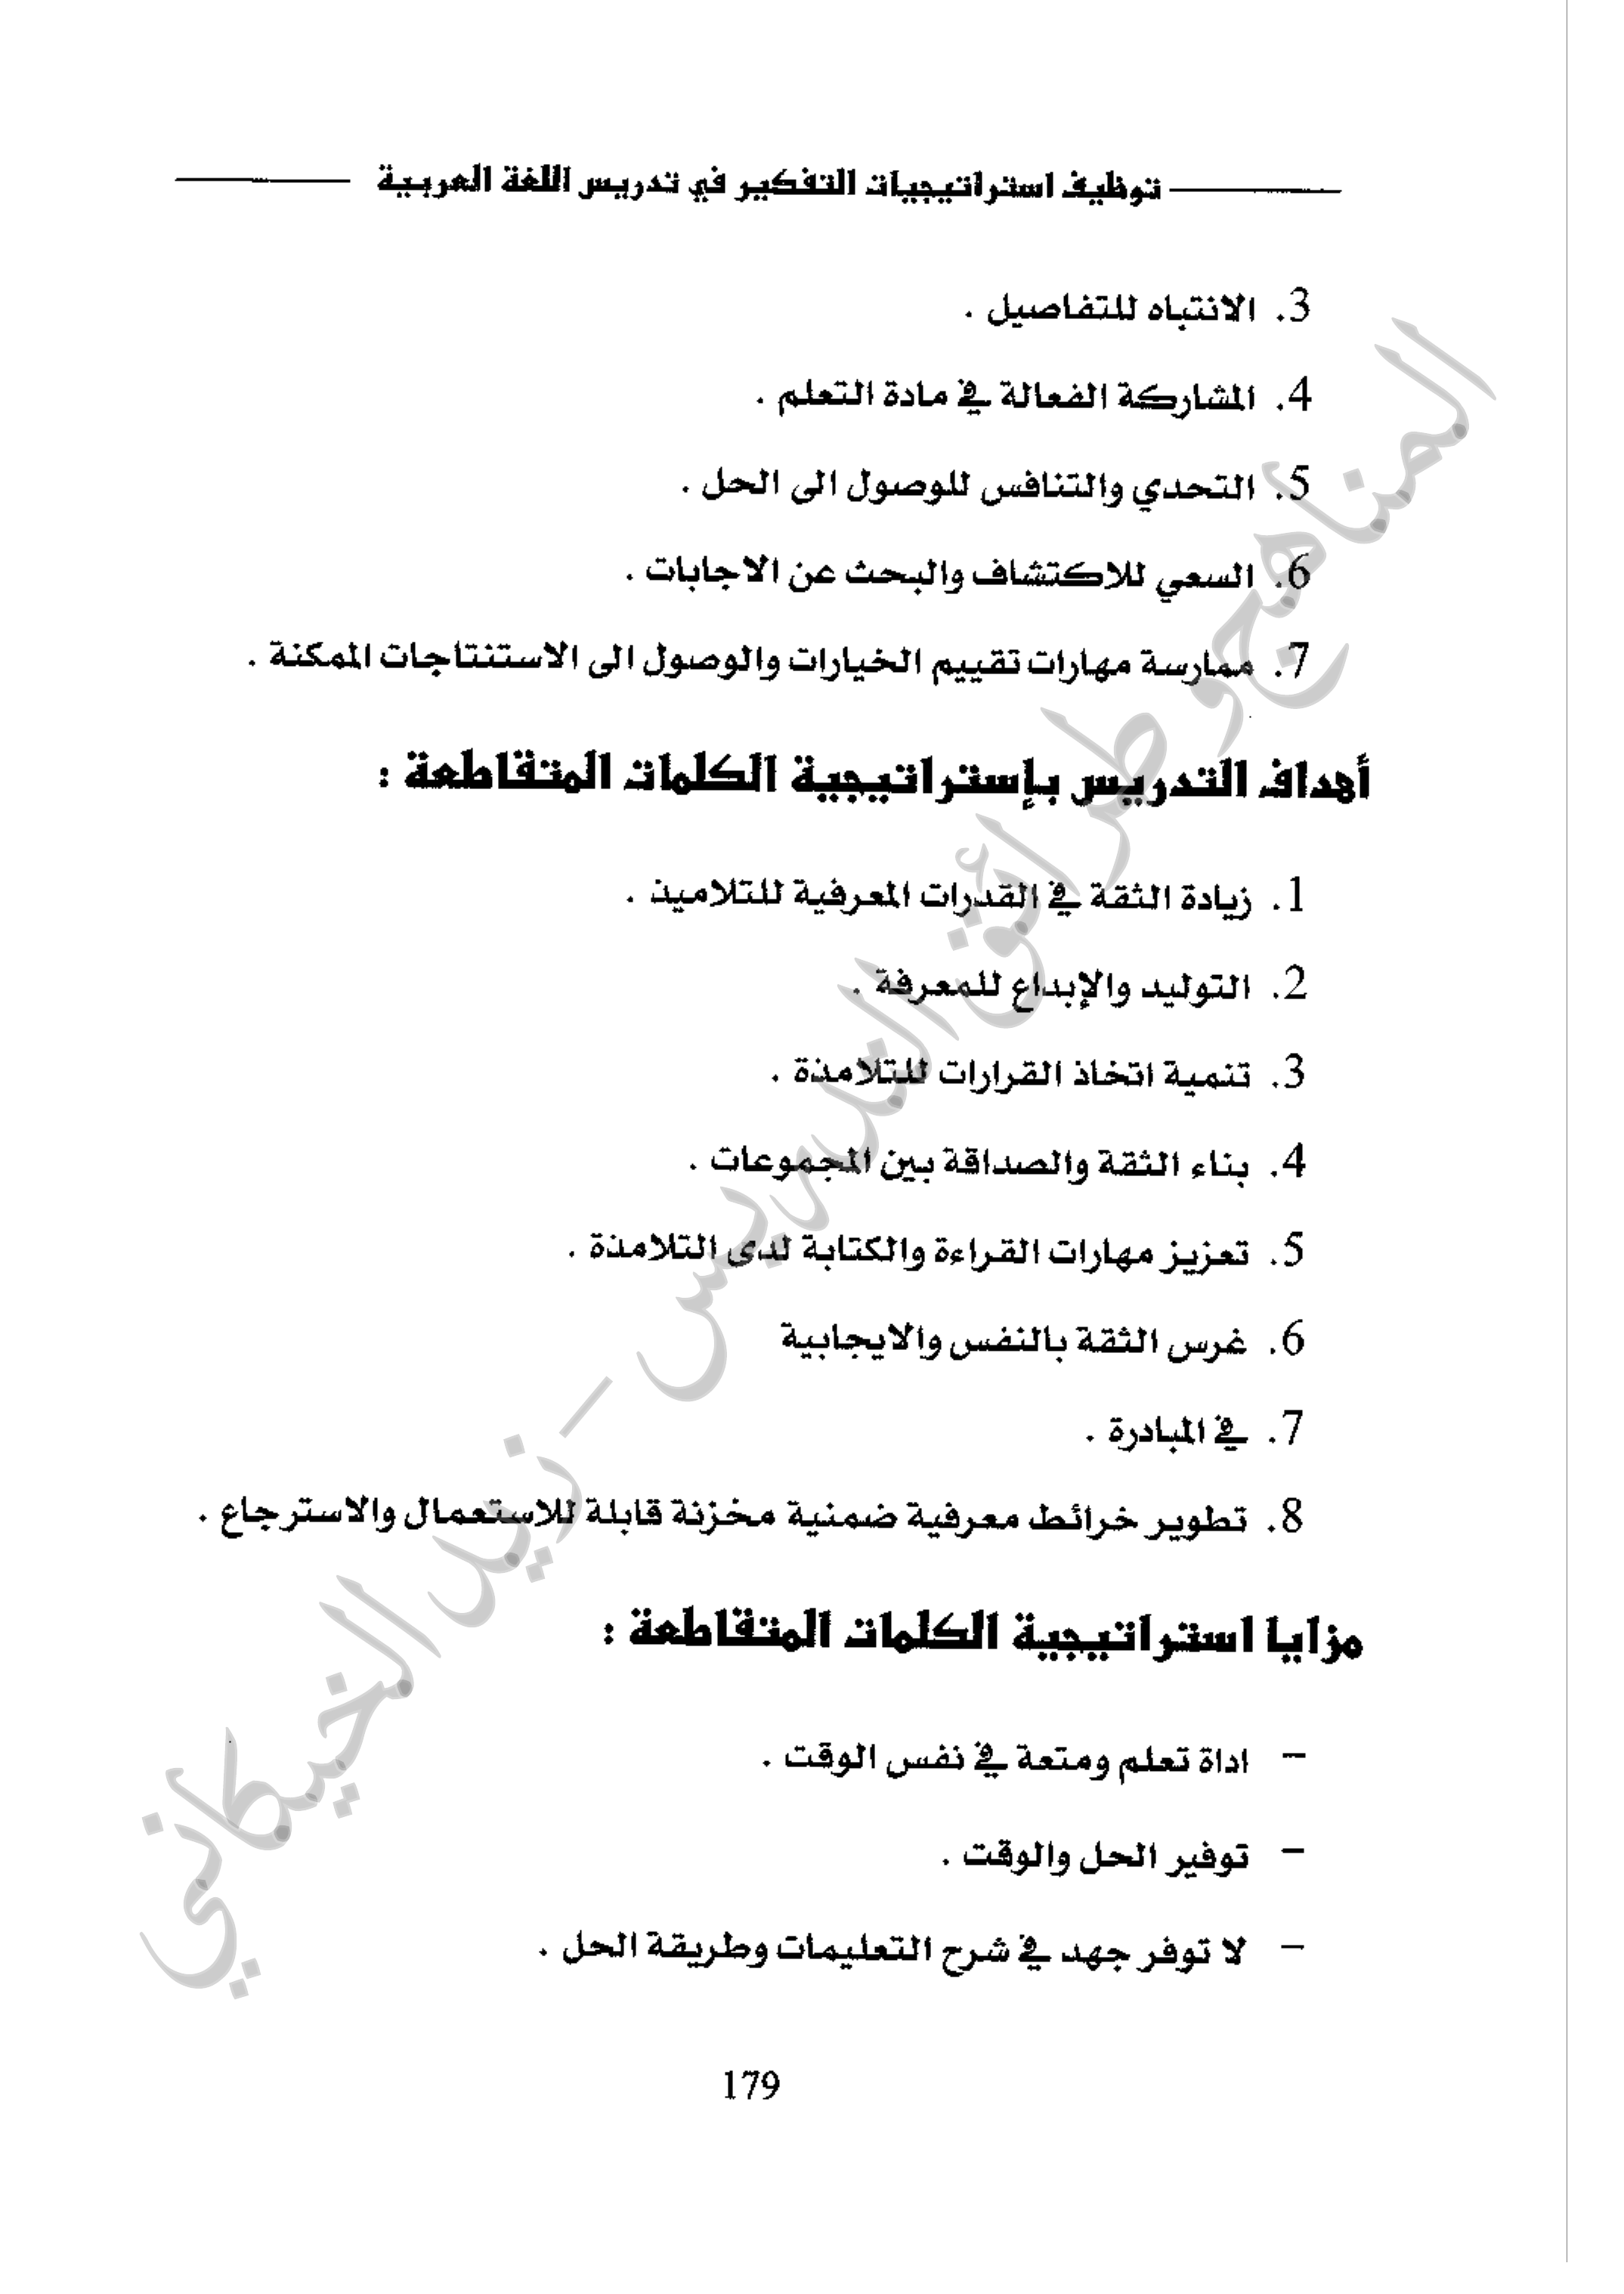 توظيف استراتيجيات التفكير في تدريس اللغة العربية
3. الانتباه للتفاصيل .
4. المشاركة الفعالة في مادة التعلم .
5. التحدي والتنافس للوصول الى الحل .
6. السعي للاكتشاف والبحث عن الاجابات .
7. ممارسة مهارات تقييم الخيارات والوصول الى الاستنتاجات الممكنة .
أهداف التدريس بإستراتيجية الكلمات المتقاطعة :
1. زيادة الثقة في القدرات المعرفية للتلاميذ .
2. التوليد والإبداع للمعرفة .
3. تنمية اتخاذ القرارات للتلامذة .
4. بناء الثقة والصداقة بين المجموعات .
5. تعزيز مهارات القراءة والكتابة لدى التلامذة .
6. غرس الثقة بالنفس والايجابية
7. في المبادرة .
8. تطوير خرائط معرفية ضمنية مخزنة قابلة للاستعمال والاسترجاع .
مزايا استراتيجية الكلمات المتقاطعة :
- اداة تعلم ومتعة في نفس الوقت .
- توفير الحل والوقت .
- لا توفر جهد في شرح التعليمات وطريقة الحل .
179
المناهج وطرائق التدريس - زيد الخيكاني